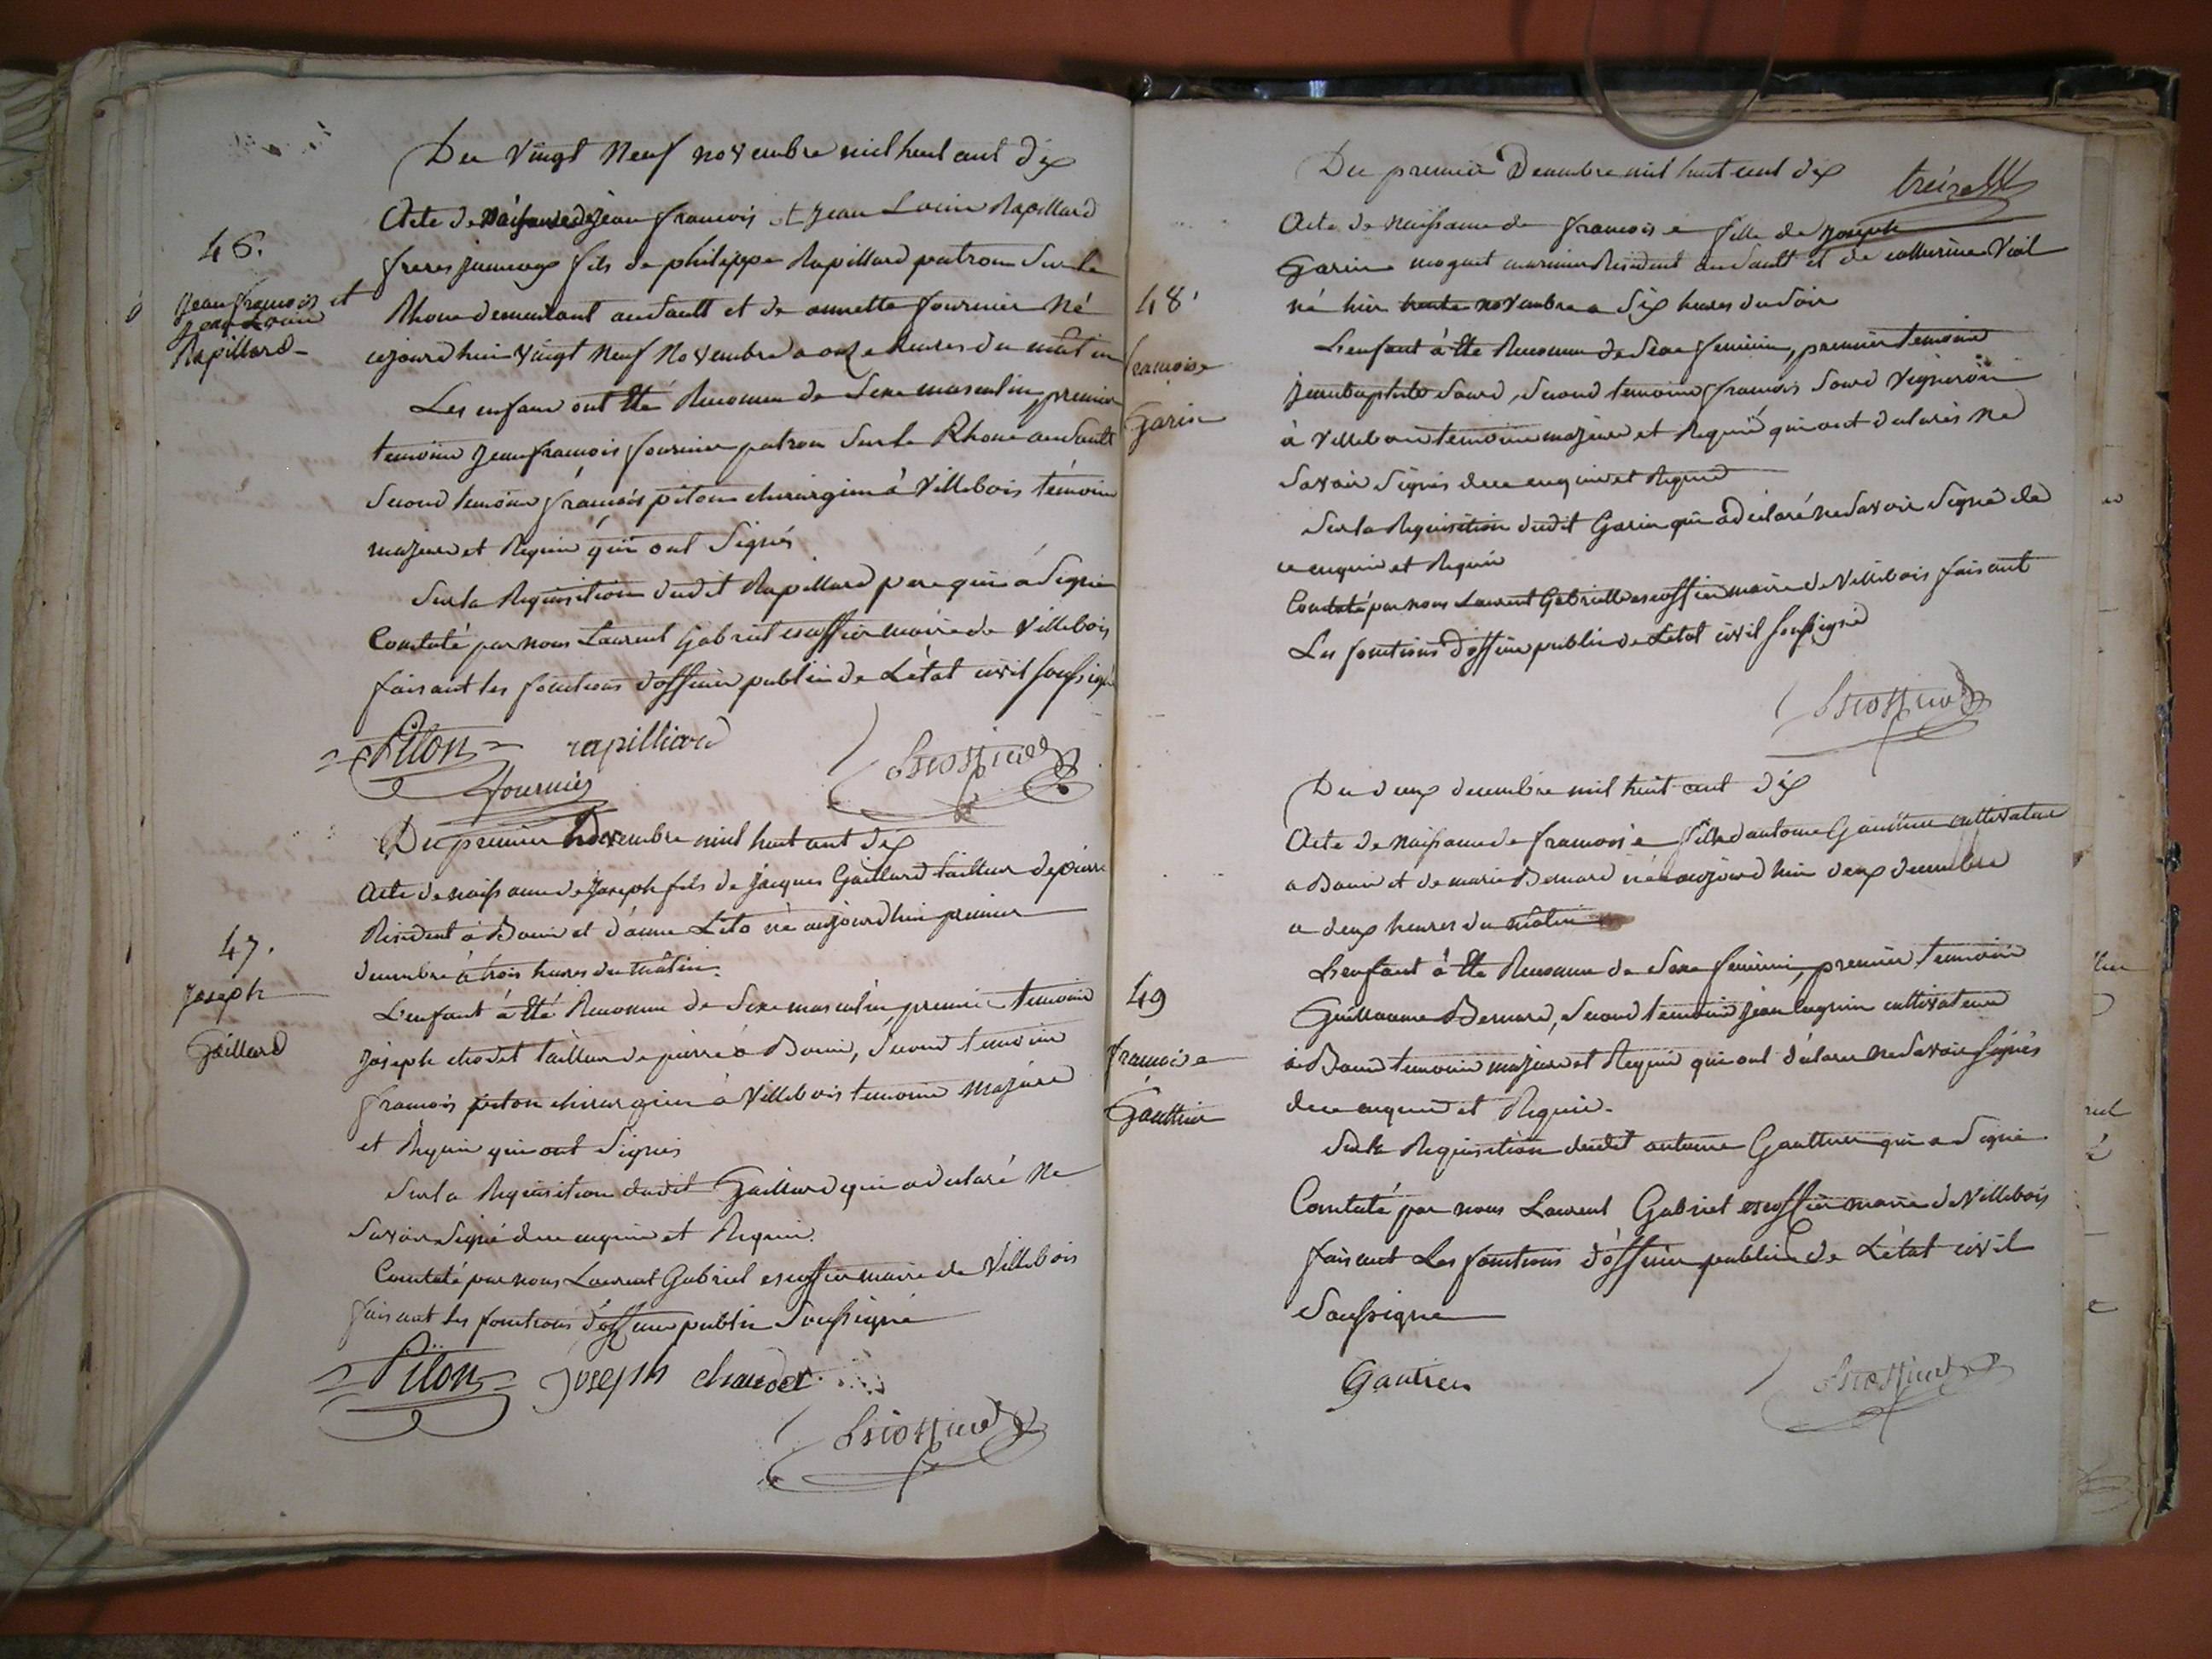 Du vingt Neuf novembre mil huit cent dix
46.
Jean françois et
Jean Louis
Rapillard
Acte de Naissance de jean francois et jean Louis Rapillard
freres jumeaux fils de philippe Rapillard patron Sur le
Rhone demeurant au Sault et de annette fournier Né
cejourdhui vingt Neuf Novembre a onze heures du matin
Les enfans ont êté Reconnu de Sexe masculin, premier
temoin jean francois fournier patron Sur le Rhone au Sault
Second temoin francois piton chirurgien à Villebois témoin
majeur et Requi qui ont Signés
Sur la Requisition dudit Rapillard pere qui à Signé
Constaté par nous Laurent Gabriel escoffier maire de Villebois
faisant les fonctions dofficier publics de L'état civil soussigné
Piton rapilliard Escoffier
fournier
Du premier Decembre mil huit cent dix
47.
Joseph
Gaillard
Acte de naissance de Joseph fils de Jacques Gaillard tailleur de pierre
Résident à Bouis et d'anne Léto né aujourdhui premier
decembre à trois heures du Matin.
L'enfant à êté Reconnu de Sexe masculin, premier temoin
Joseph chodet tailleur de pierre à Bouis, Second temoin
francois piton chirurgien à Villebois temoin Majeur
et Requi qui ont Signés
Sur la Requisition dudit Gaillard qui a declaré Ne
Savoir Signé de ce enquis et Requis.
Constaté par nous Laurent Gabriel escoffier maire de Villebois
faisant les fonctions d'officier public Soussigné
Piton Joseph chaudet
Escoffier
Du premier Decembre mil huit cent dix
treize
48
francoise
Garin
Acte de Naissance de francoise fille de Joseph
Garin moquet marinier Résident au Sault et de catherine Vial
né hier trente novembre a Six heures du Soir
L'enfant à êté Reconnu de Sexe feminin, premier temoin
jean baptiste Sourd, Second temoin francois Sourd Vigneron
à Villebois temoin majeur et Requis qui ont declarés Ne
Savoir Signés de ce enquis et Requis
Sur la Requisition dudit Garin qui à déclaré ne Savoir Signé de
ce enquis et Requis
Constaté par nous Laurent Gabrielle escoffier maire de Villebois faisant
Les fonctions d'officier public de L'etat civil soussigné
Escoffier
Du deux decembre mil huit cent dix
49
francoise
Gauthier
Acte de Naissance de francoise fille d'antoine Gauthier cultivateur
a Bouis et de marie Bernard née aujourdhui deux decembre
a deux heures du matin
L'enfant à êté Reconnu de Sexe feminin, premier temoin
Guillaume Bernard, Second temoin jean cultivateur
à Bouis temoin majeur et Requis qui ont déclaré ne Savoir Signés
de ce enquis et Requis.
Sur la Requisition dudit antoine Gauthier qui a Signé
Constaté par nous Laurent Gabriel escoffier maire de Villebois
faisant Les fonctions d'officier public de L'état civil
Soussigné
Gautier Escoffier